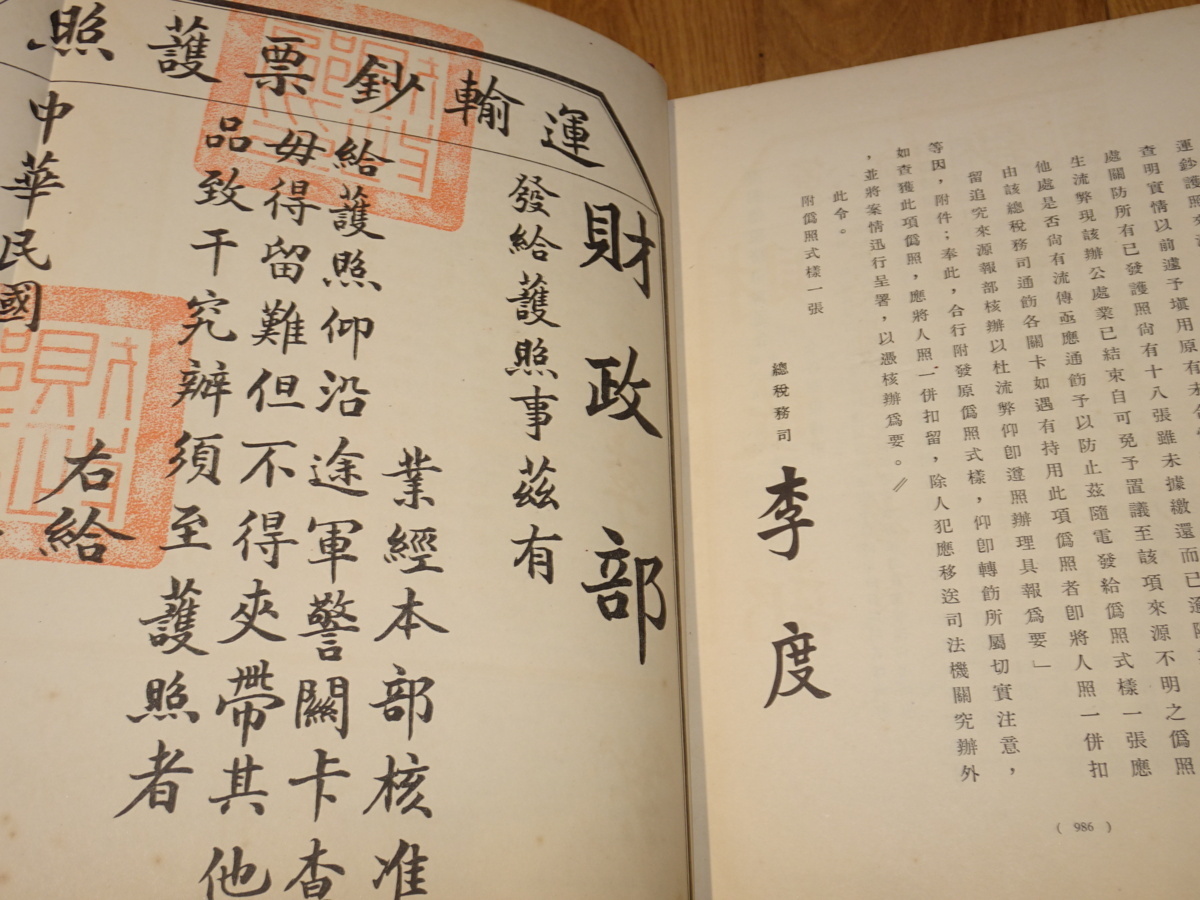 運鈔護照
查明實情以前遽予填用原有未合
處關防所有已發護照尙有十八張雖未據繳還而已逾限
生流弊現該辦公處業已結束自可免予置議至該項來源不明之僞照
他處是否尙有流傳亟應通飭予以防止茲隨電發給僞照式樣一張應
由該總稅務司通飭各關卡如遇有持用此項僞照者卽將人照一併扣
留追究來源報部核辦以杜流弊仰卽遵照辦理具報爲要」
等因，附件；奉此，合行附發原僞照式樣，仰卽轉飭所屬切實注意，
如查獲此項僞照，應將人照一併扣留，除人犯應移送司法機關究辦外
，並將案情迅行呈署，以憑核辦爲要。
此令。
附僞照式樣一張
總稅務司
李度
( 986 )
運輸鈔票護照
財政部
發給護照事茲有
業經本部核准
給護照仰沿途軍警關卡查
毋得留難但不得夾帶其他
品致干究辦須至護照者
右給
中華民國